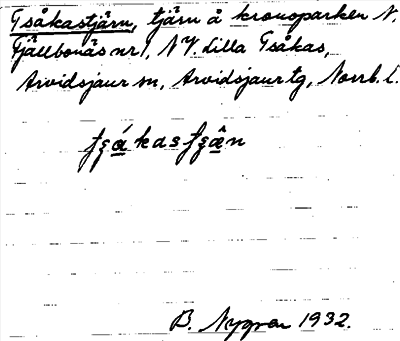 Tsåkastjärn, tjärn å kronoparken N.
Fjällbonäs nr 1, N V. Lilla Tsåkas,
Arvidsjaur sn, Arvidsjaur tg, Norrb. l.
B. Nygren 1932.